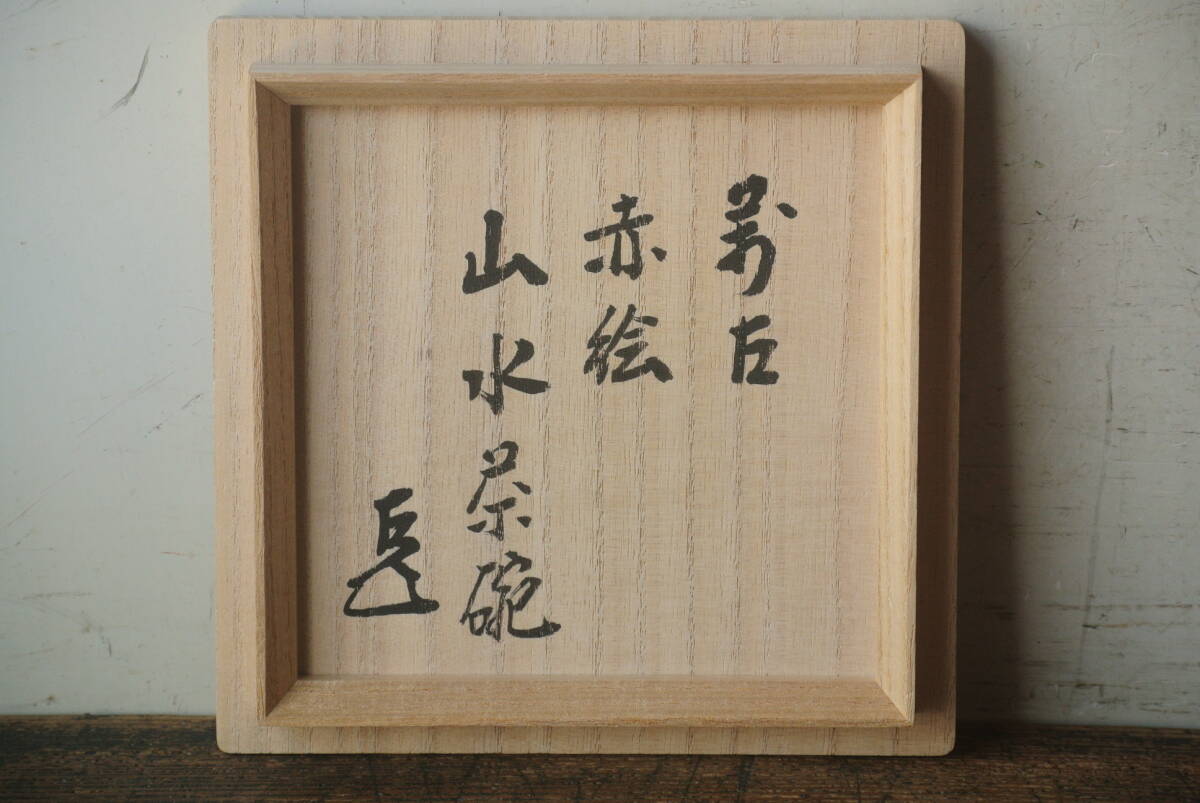 萬古
赤絵
山水茶碗